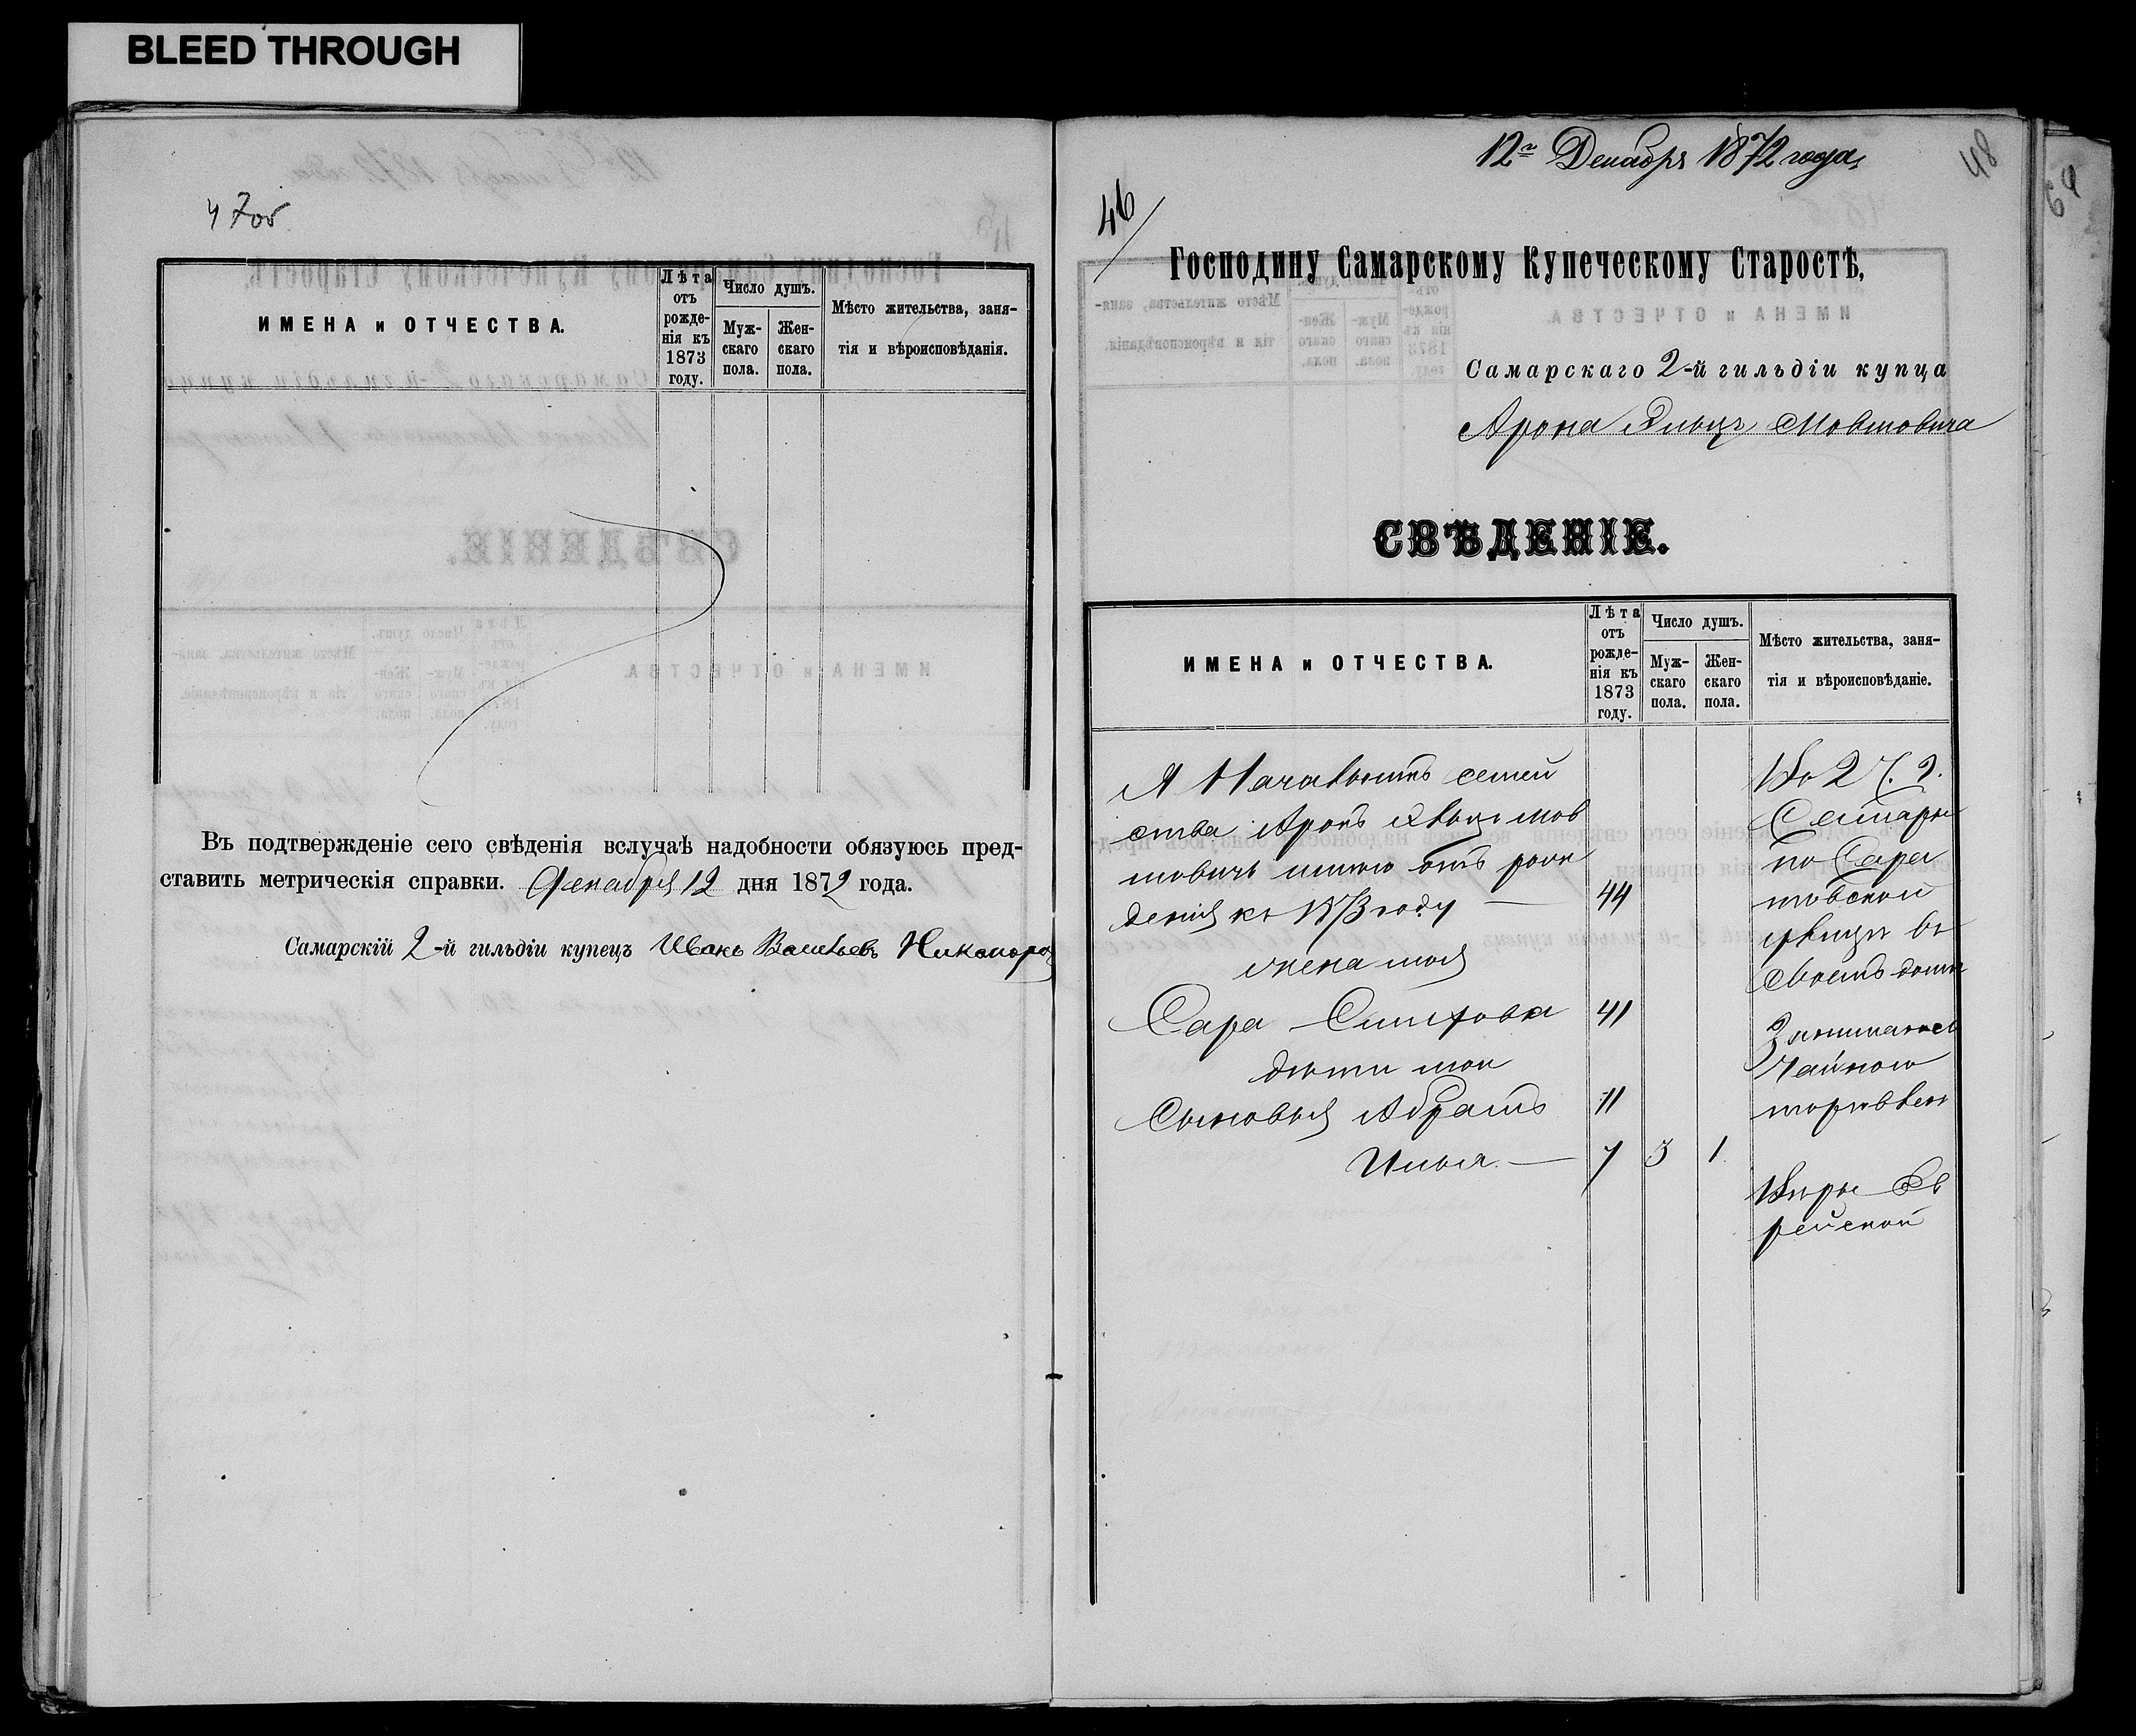 BLEED THROUGH
47об
ИМЕНА и ОТЧЕСТВА.
Лѣта отъ рожде-нія къ 1873 году.
Число душъ.
Муж-скаго пола.
Жен-скаго пола.
Мѣсто жительства, заня-
тія и вѣроисповѣданія.
Въ подтвержденіе сего свѣденія вслучаѣ надобности обязуюсь пред-
ставить метрическія справки. Декабря 12 дня 1872 года.
Самарскій 2-й гильдіи купецъ Иванъ Васильевъ Никоноровъ
12го Декабря 1872 года
48
69
46
Господину Самарскому Купеческому Старостѣ,
Самарскаго 2-й гильдіи купца
Арона Мовшовича
СВѢДЕНІЕ.
ИМЕНА и ОТЧЕСТВА.
Лѣта отъ рожде-нія къ 1873 году.
Число душъ.
Муж-скаго пола.
Жен-скаго пола.
Мѣсто жительства, заня-
тія и вѣроисповѣданіе.
Я Начальникъ семей
ства Аронъ Мов
шовичъ имѣю отъ рож
денія къ 1873 году 44
жена моя
Сара 41
дѣти мои
Сыновья Абрамъ 11
Илья 7 3 1
Во 2 ч. г.
Самары
по Сара
товской
улицѣ въ
своемъ домѣ
Занимаюсь
Чайною
торговлею
Вѣры Ев
рейской